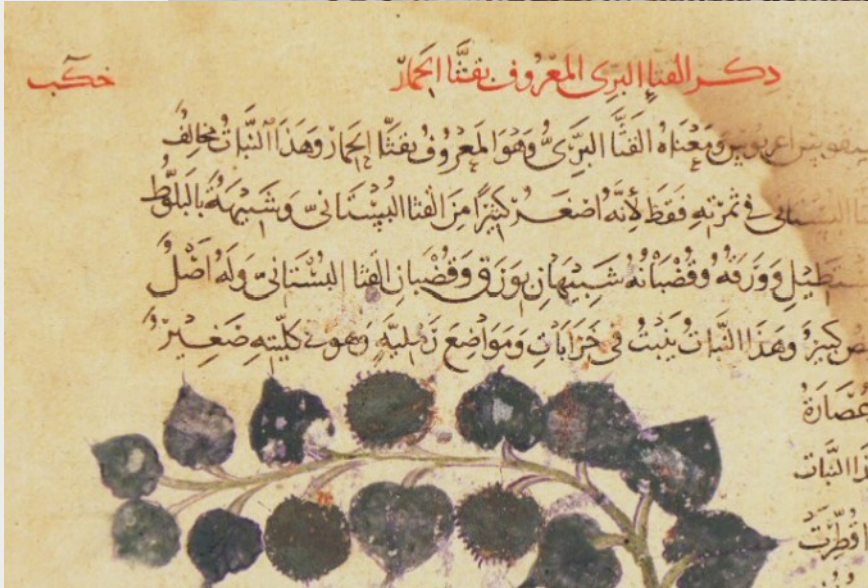 ذكر القثاء البري المعروف بقثا الحمار
ومعناه القثا البري وهو المعروف بقثا الحمار وهذا النبات مخالف
البستاني في ثمرته فقط لأنه اصغر كثيرا من القثا البستاني وشبيهة بالبلوط
وورقه وقضبانه شبيهان بورق وقضبان القثا البستاني وله اصل
كبير وهذا النبات ينبت في خرابات ومواضع زملية وهو في كليته صغير
عصارة
النبات